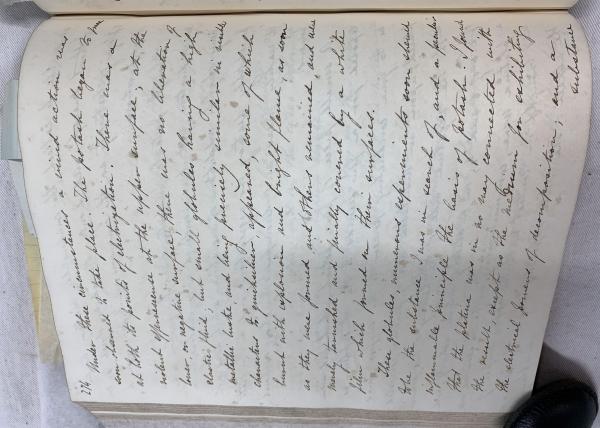 214 Under these circumstances a vivid action was
soon observed to take place. The potash began to fuse
at both its points of electrization. There was a
violent effervescence at the upper surface; at the
lower, or negative surface, there was no liberation of
elastic fluid; but small globules having a high
metallic lustre and being precisely similar in visible
characters to quicksilver appeared, some of which
burnt with explosion and bright flame, as soon
as they were formed and others remained and were
merely tarnished and finally covered by a white
film which formed on their surfaces.
These globules, numerous experiments soon shewed
to be the substance I was in search of, and a peculiar
inflammable principle the basis of potash. I found
that the platina was in no way connected with
the result, except as the medium for exhibiting
the electrical powers of decomposition; and a
substance